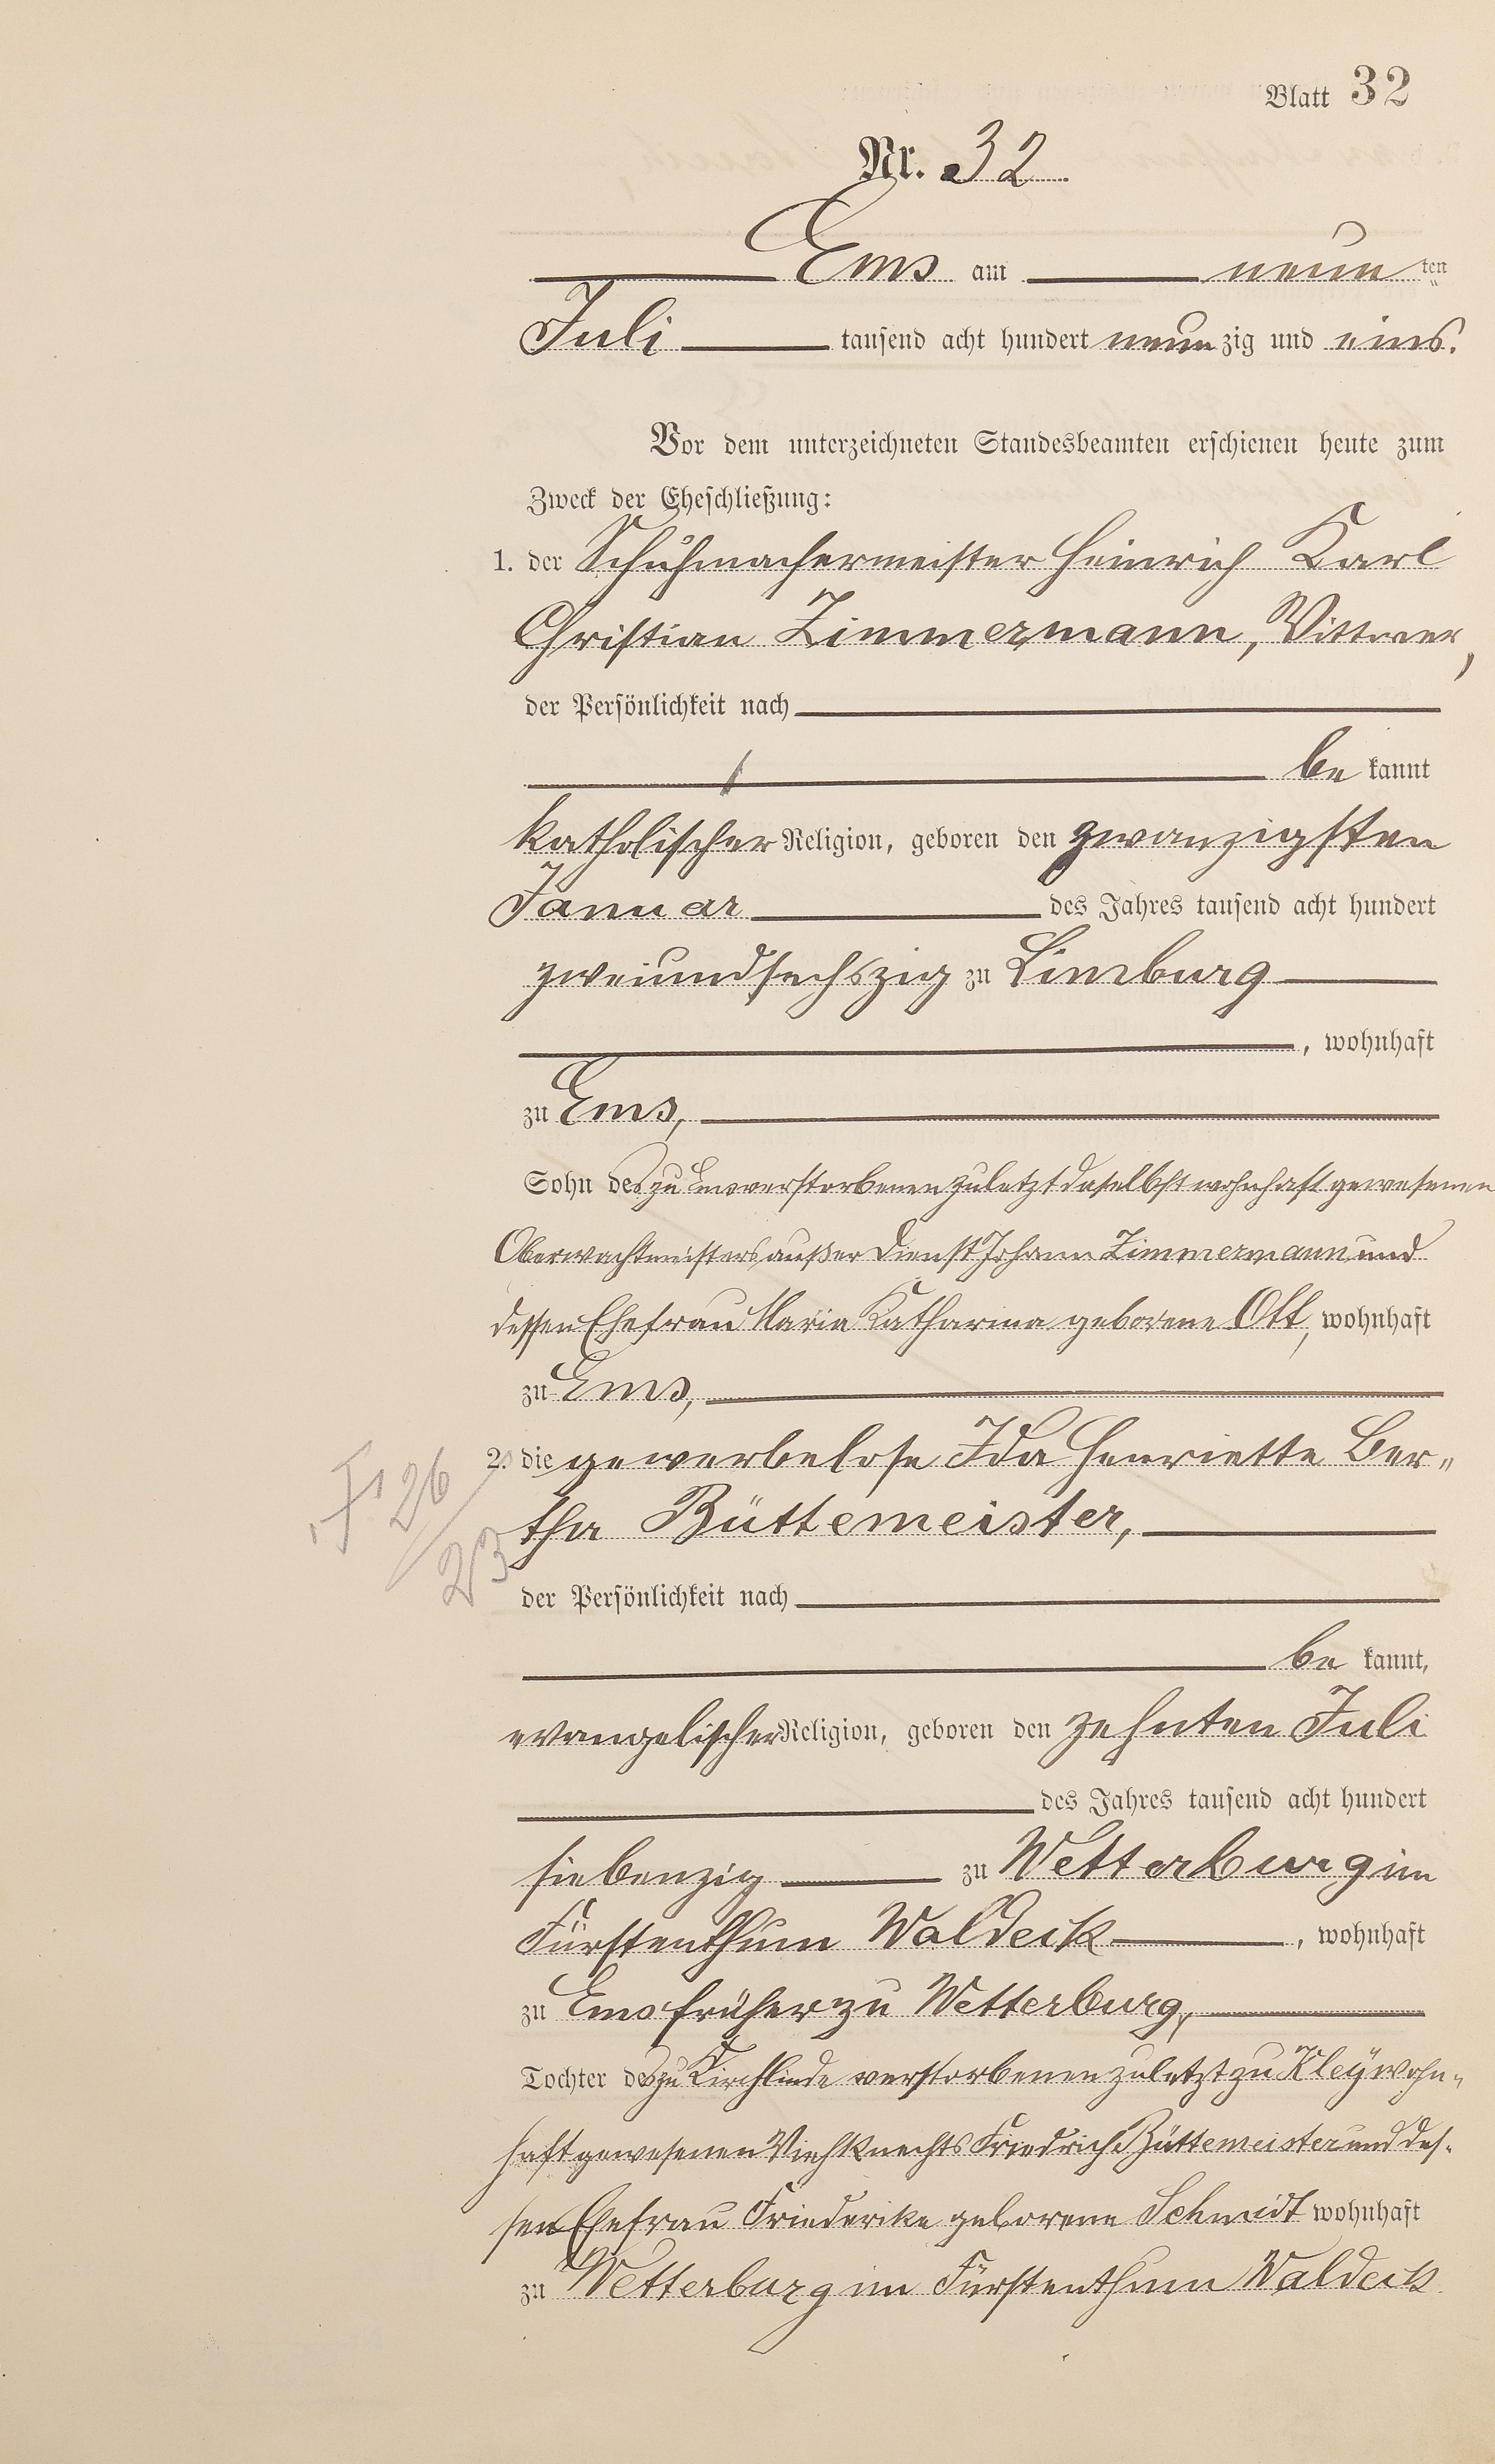 Blatt 32
Nr. 32
Ems am neun ten
Juli tausend acht hundert neunzig und eins.
Vor dem unterzeichneten Standesbeamten erschienen heute zum
Zweck der Eheschließung:
1. der Schuhmachermeister Heinrich Karl
Christian Zimmermann, Wittwer,
der Persönlichkeit nach
bekannt
katholischer Religion, geboren den zwanzigsten
Januar des Jahres tausend acht hundert
zweiundsechszig zu Limburg
, wohnhaft
zu Ems,
Sohn des zu Ems verstorbenen zuletzt daselbst wohnhaft gewesenen
Oberwachtmeisters außer Dienst Johann Zimmermann und
dessen Ehefrau Maria Katharina geborene Ott, wohnhaft
zu Ems,
2. die gewerbelose Ida Henriette Ber„
tha Büttemeister,
26
23
der Persönlichkeit nach
bekannt,
evangelischer Religion, geboren den zehnten Juli
des Jahres tausend acht hundert
siebenzig zu Wetterburg im
Fürstenthum Waldeck, wohnhaft
zu Ems früher zu Wetterburg,
Tochter des zu Kirchlinde verstorbenen zuletzt zu Kley wohn„
haft gewesenen Viehknechts Friedrich Büttemeister und des„
sen Ehefrau Friederike geborene Schmidt wohnhaft
zu Wetterburg im Fürstenthum Waldeck